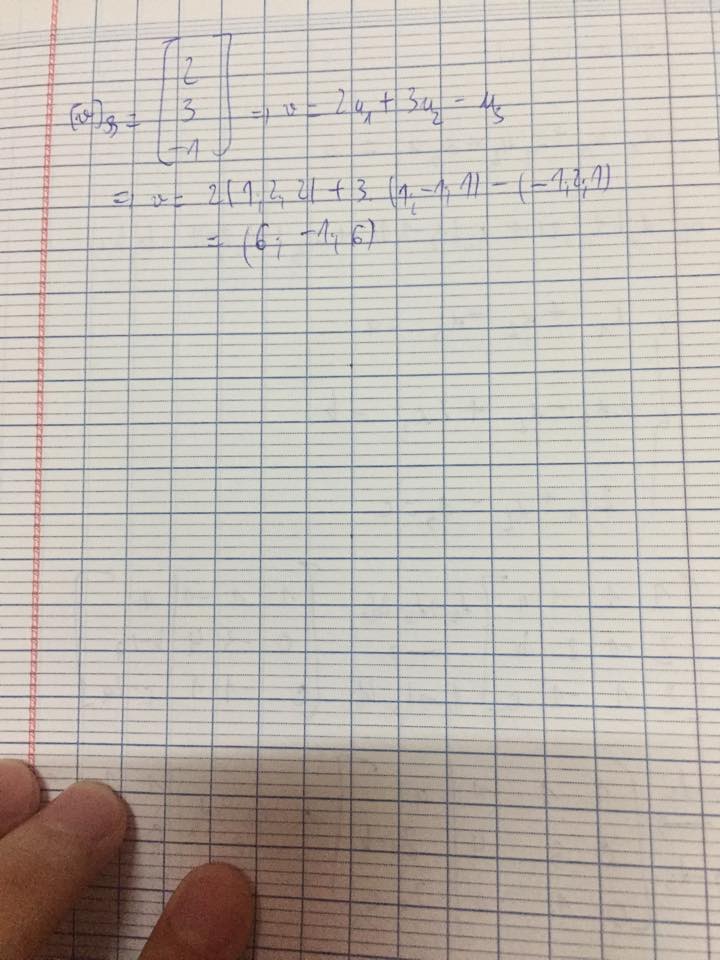 [v]_B = [2 3 -1] ⇒ v = 2u₁ + 3u₂ - u₃
⇒ v = 2(1, 2, 2) + 3. (1; -1; 1) - (-1, 2, 1)
= (6; -1; 6)